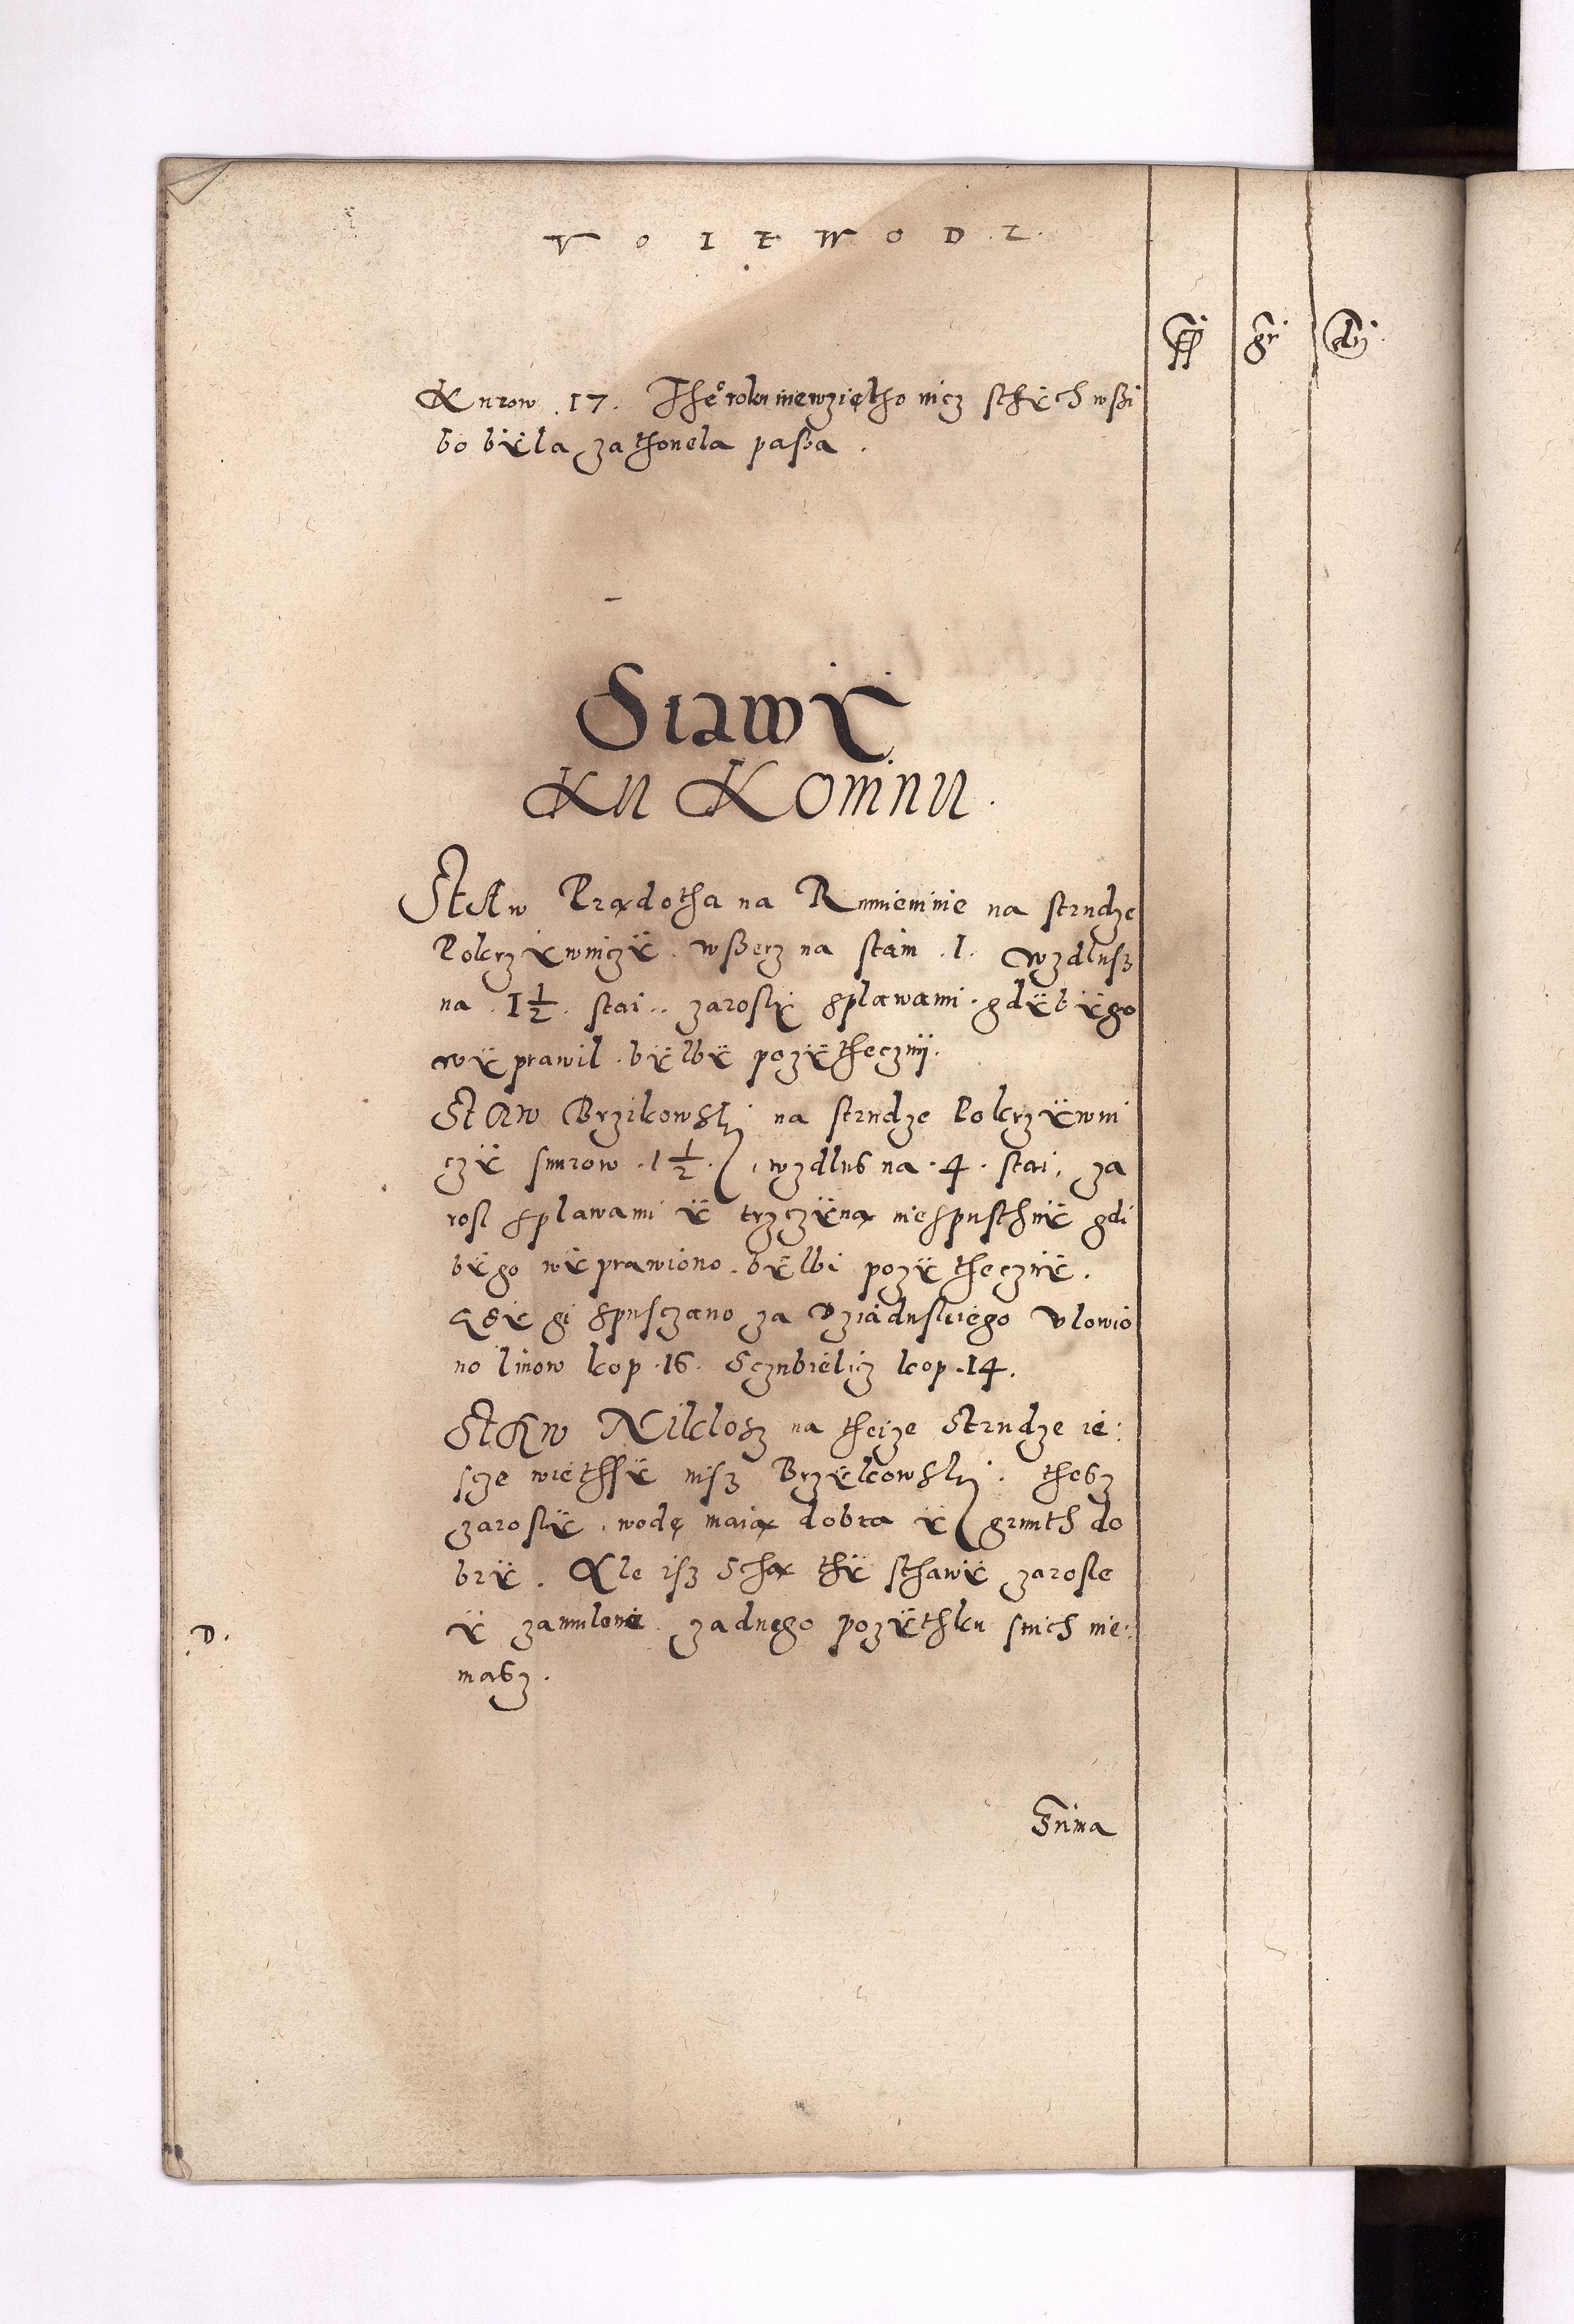 VOIEWODZ.
fl gr đn
Knrow .17. The° roku niewzietho nicz sthÿch wßi
bo bÿla zathonela paßa.
Stawÿ
Ku Kominu.
Staw Prądotha na Rumienine na strudze
Pokrzÿwniczÿ. wßerz na stain .1. wzdlusz
na .1 1/2. stai.. zaroslÿ splawami. gdÿbÿgo
wÿprawil. bÿlbÿ pozÿthecznÿ.
Staw Brzikowski na strudze Pokrzÿwni
czÿ snurow .1 1/2. wzdlus na .4. stai, za
rosl splawami ÿ trzczÿną niespusthnÿ gdi
bÿgo wÿprawiono. bÿlbi pozÿthecznÿ.
gi spusczano za Dziaduskiego Vlowio
no linow kop .16. Sczubielicz kop .14.
Staw Niklosz na theize Strudze ie:
scze wiethsÿ nisz Brzÿkowski. thesz
zaroslÿ. wodę maią dobra ÿ grunth do
brÿ. Ale isz Są thÿ sthawÿ zarosle
ÿ zamulone zadnego pozÿthku snich nie:
masz.
D.
Suma